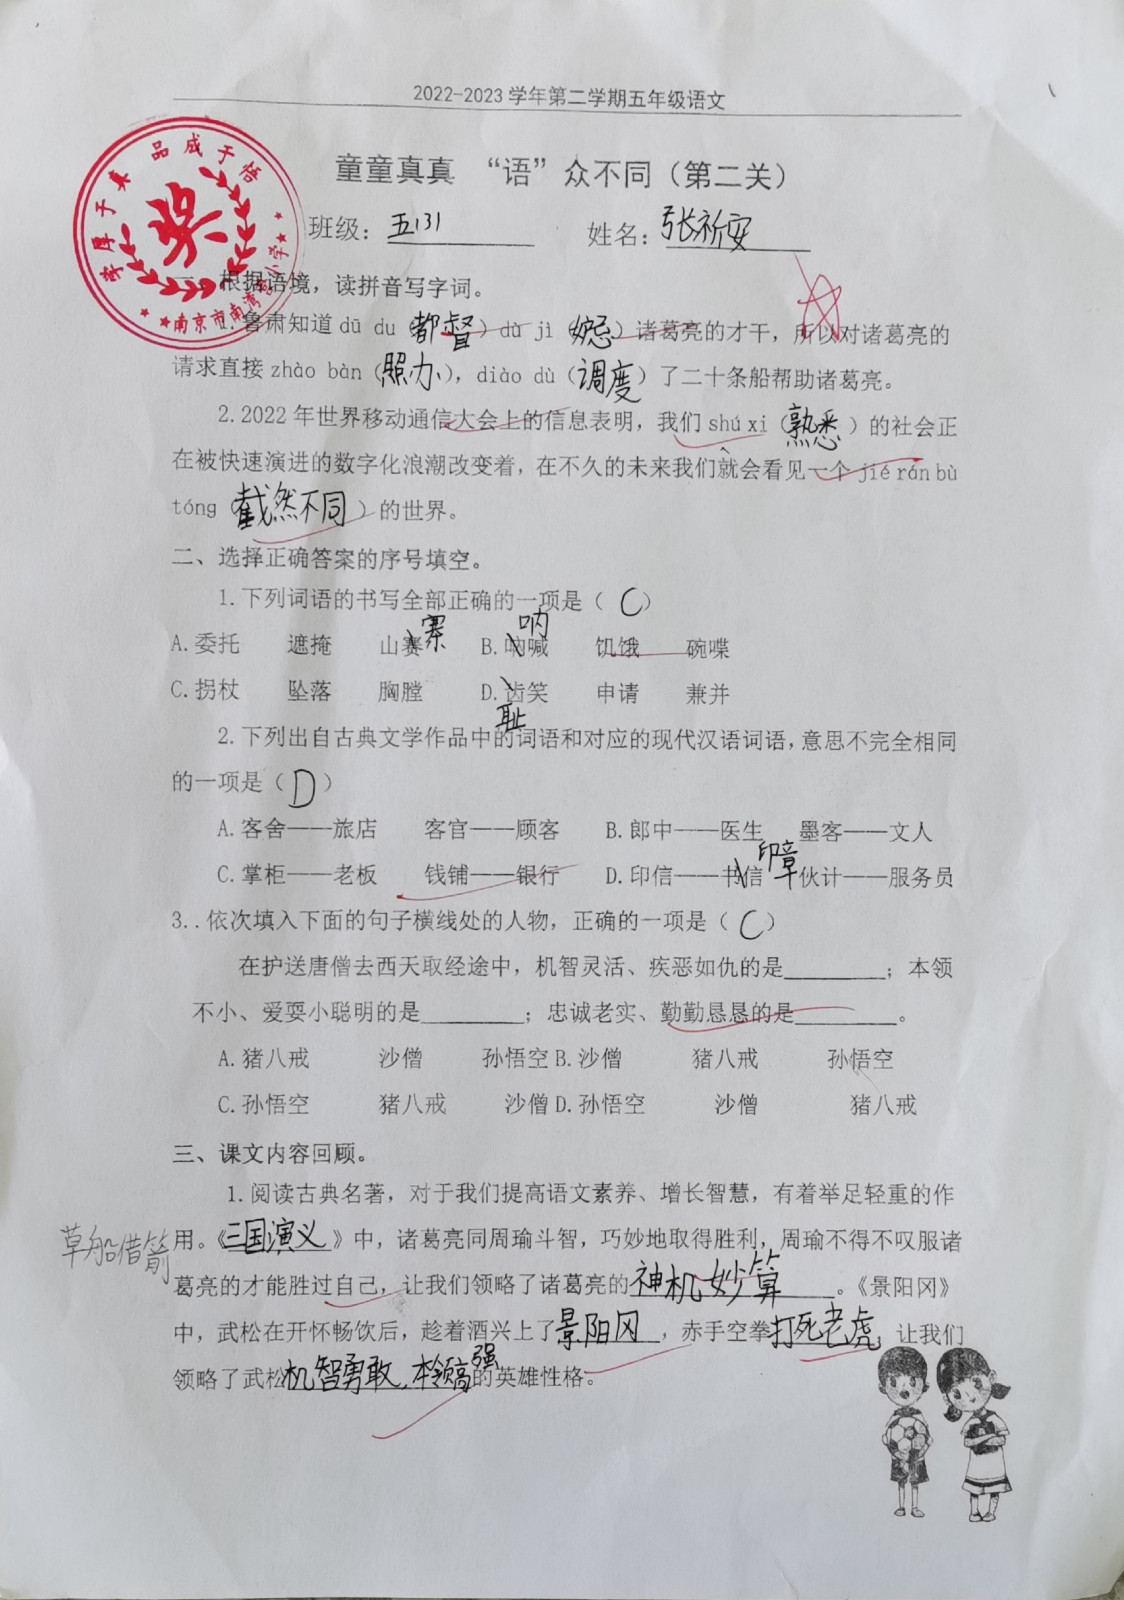 2022-2023学年第二学期五年级语文
学厚于真 品成于悟
奖
童童真真 “语”众不同（第二关）
班级：五(3) 姓名：张祈安
一、根据语境，读拼音写字词。
1.鲁肃知道 dū du（都督）dù jì（妒忌）诸葛亮的才干，所以对诸葛亮的
请求直接 zhào bàn（照办），diào dù（调度）了二十条船帮助诸葛亮。
2.2022年世界移动通信大会上的信息表明，我们 shú xi（熟悉）的社会正
在被快速演进的数字化浪潮改变着，在不久的未来我们就会看见一个 jié rán bù
tóng（截然不同）的世界。
二、选择正确答案的序号填空。
1.下列词语的书写全部正确的一项是（C）
寨 呐
A.委托 遮掩 山赛 B.响喊 饥饿 碗喋
C.拐杖 坠落 胸膛 D.齿笑 申请 兼并
耻
2.下列出自古典文学作品中的词语和对应的现代汉语词语，意思不完全相同
的一项是（D）
A.客舍——旅店 客官——顾客 B.郎中——医生 墨客——文人
印章
C.掌柜——老板 钱铺——银行 D.印信——书信 伙计——服务员
3..依次填入下面的句子横线处的人物，正确的一项是（C）
在护送唐僧去西天取经途中，机智灵活、疾恶如仇的是________；本领
不小、爱耍小聪明的是________；忠诚老实、勤勤恳恳的是________。
A.猪八戒 沙僧 孙悟空 B.沙僧 猪八戒 孙悟空
C.孙悟空 猪八戒 沙僧 D.孙悟空 沙僧 猪八戒
三、课文内容回顾。
1.阅读古典名著，对于我们提高语文素养、增长智慧，有着举足轻重的作
草船借箭
用。《三国演义》中，诸葛亮同周瑜斗智，巧妙地取得胜利，周瑜不得不叹服诸
葛亮的才能胜过自己，让我们领略了诸葛亮的神机妙算。《景阳冈》
中，武松在开怀畅饮后，趁着酒兴上了景阳冈，赤手空拳打死老虎，让我们
领略了武松机智勇敢，本领高强的英雄性格。